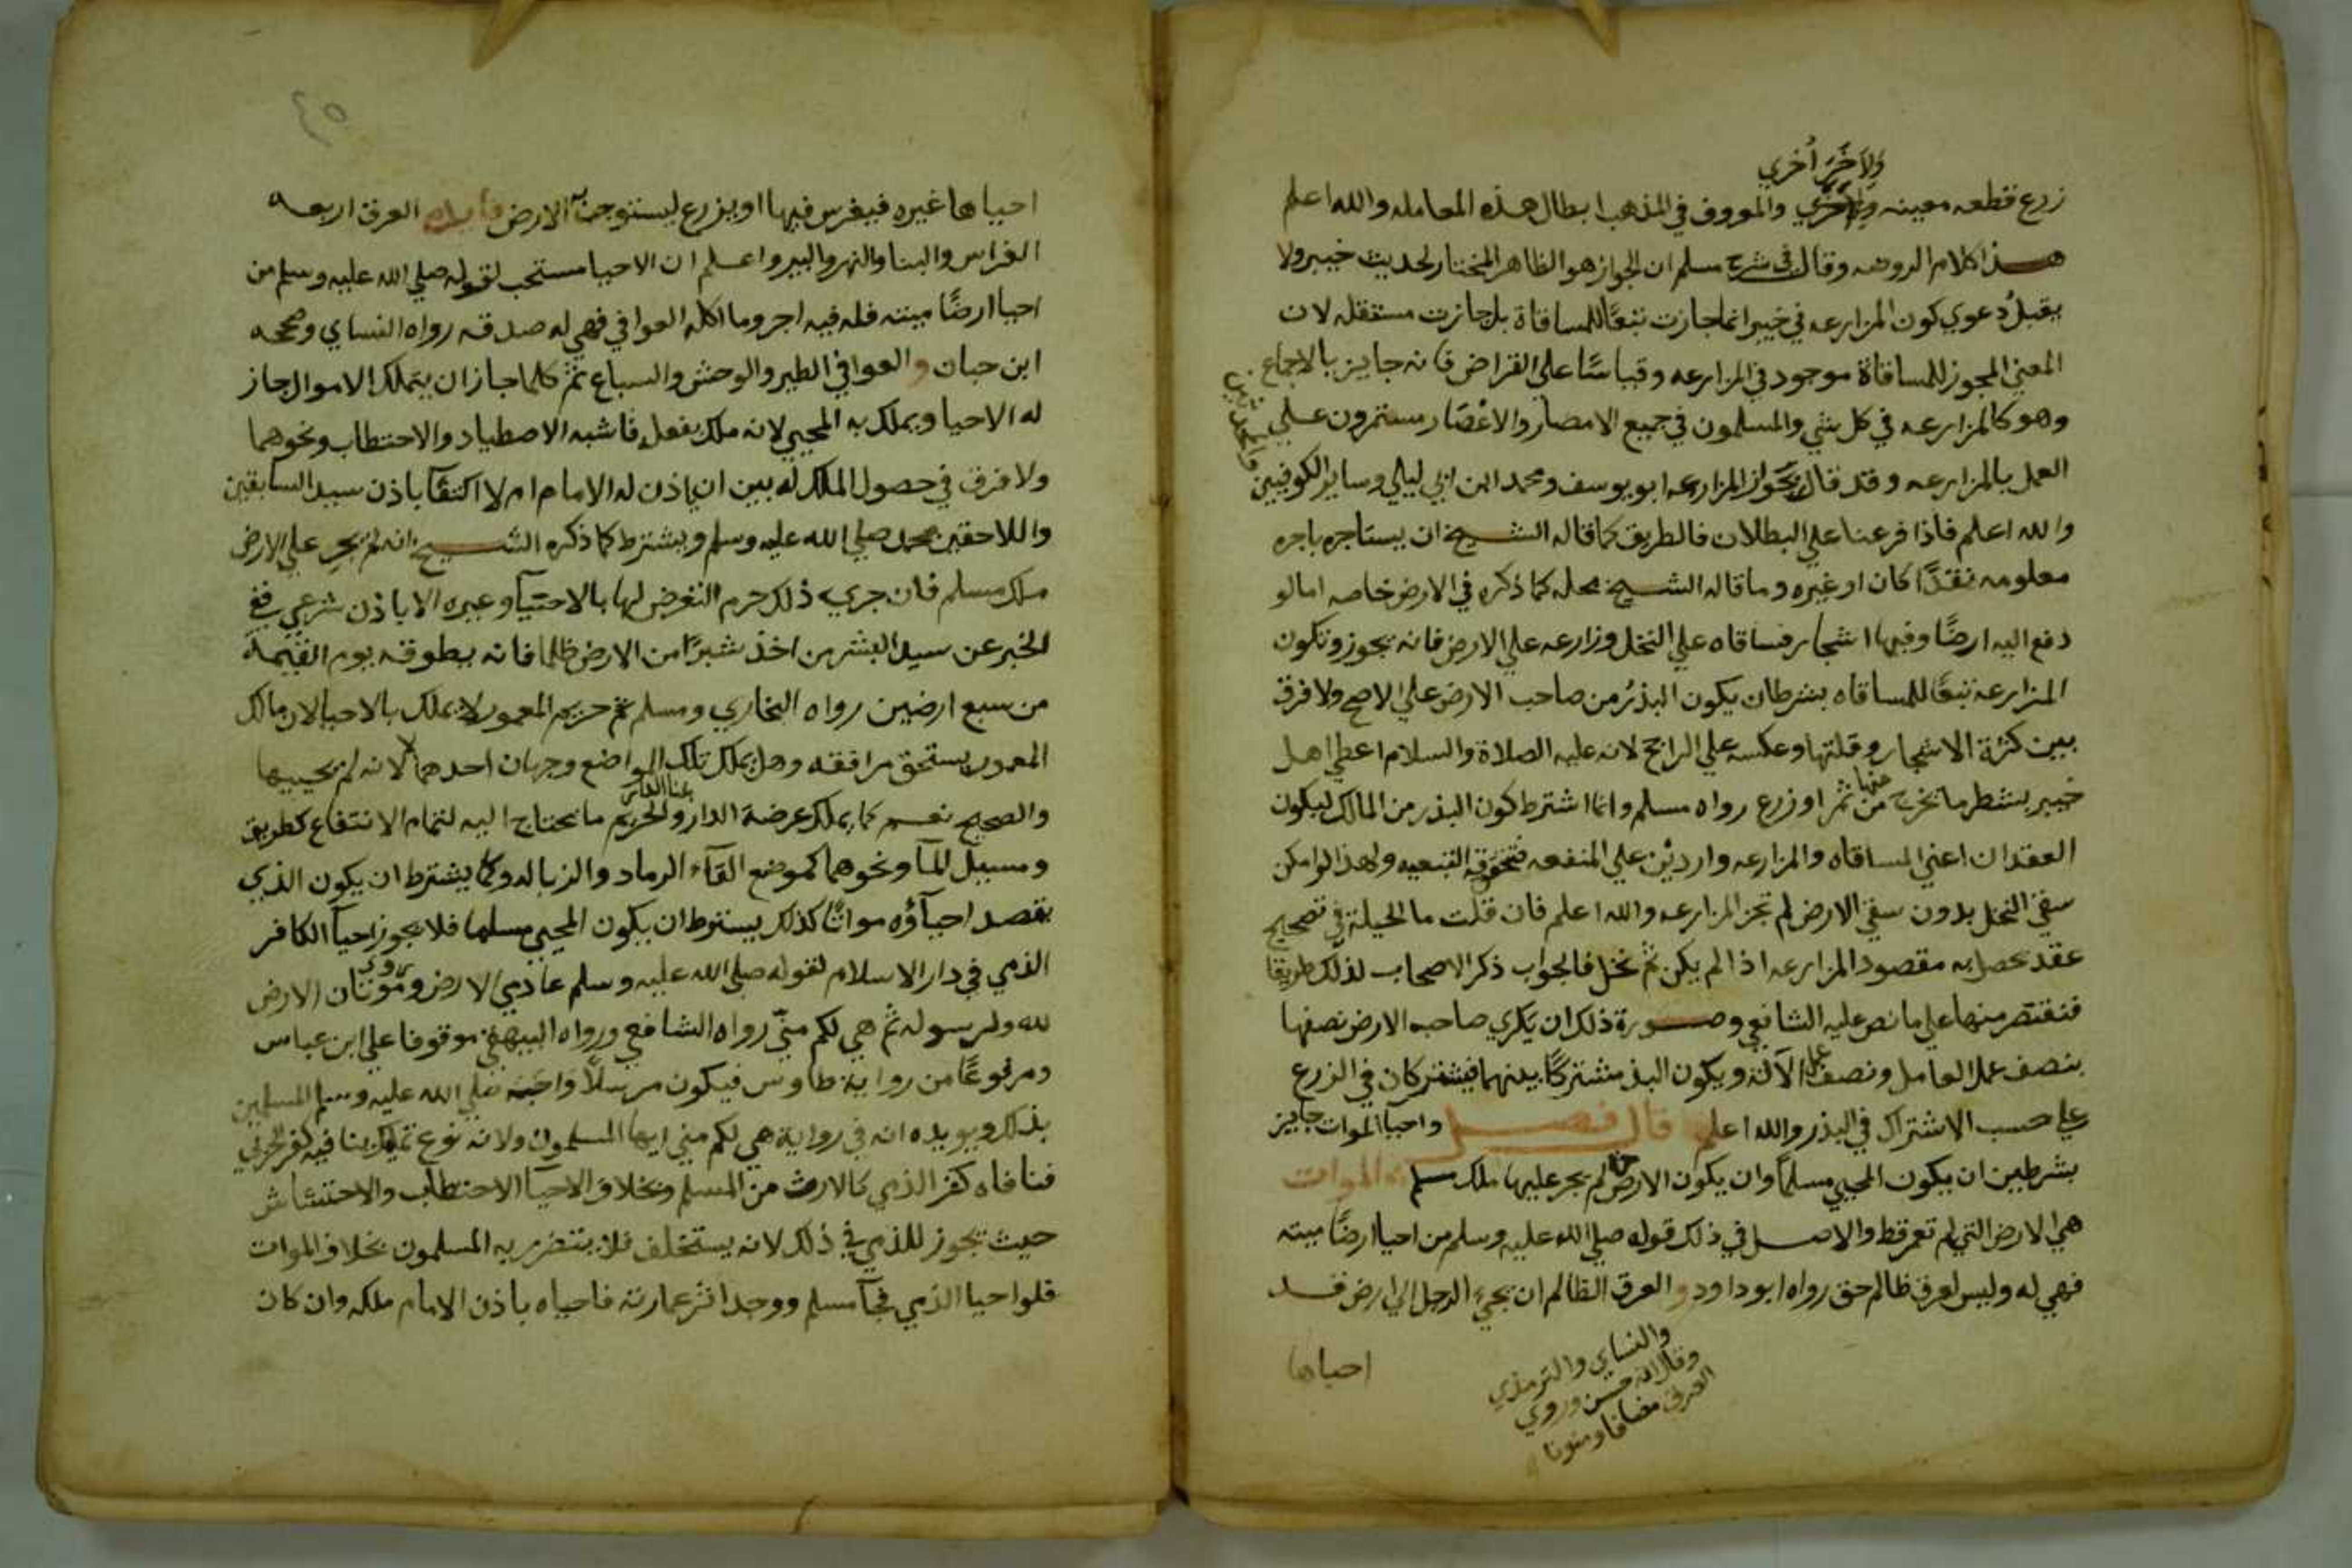 ولآخر أخري
زرع قطعه معينه ولاخري والمعروف في المذهب ابطال هذه المعامله والله اعلم
هذا كلام الروضه وقال في شرح مسلم ان الجواز هو الظاهر المختار لحديث خيبر ولا
يقبل دعوي كون المزارعه في خيبر انما جازت تبعًا للمساقاة بل جازت مستقله لان
المعني المجوز للمساقاة موجود في المزارعه وقياسًا علي القراض فانه جايز بالاجماع
وهو كالمزارعه في كل شي والمسلمون في جميع الامصار والاعصار مستمرون علي
العمل بالمزارعه وقد قال بجواز المزارعه ابو يوسف ومحمد ابن ابي ليلي وساير الكوفيين
والمحدثين
والله اعلم فاذا فرعنا علي البطلان فالطريق كما قاله الشيخ ان يستاجره باجره
معلومه نقدًا كان او غيره وما قاله الشيخ محله كما ذكره في الارض خاصه اما لو
دفع اليه ارضًا وفيها اشجار فساقاه علي النخل وزارعه علي الارض فانه يجوز وتكون
المزارعه تبعًا للمساقاه بشرط ان يكون البذر من صاحب الارض علي الاصح ولا فرق
بين كثرة الاشجار وقلتها وعكسه علي الراجح لانه عليه الصلاة والسلام اعطي اهل
خيبر بشطر ما يخرج منها من ثمر او زرع رواه مسلم وانما اشترط كون البذر من المالك ليكون
العقدان اعني المساقاه والمزارعه واردين علي المنفعه فتحقق التبعيه ولهذا لو امكن
سقي النخل بدون سقي الارض لم تجز المزارعه والله اعلم فان قلت ما الحيلة في تصحيح
عقد يحصل به مقصود المزارعه اذا لم يكن ثم نخل فالجواب ذكر الاصحاب لذلك طريقا
فنقتصر منها علي ما نص عليه الشافعي وصورة ذلك ان يكري صاحب الارض نصفها
بنصف عمل العامل ونصف عمل الآلة ويكون البذر مشتركًا بينهما فيشتركان في الزرع
علي حسب الاشتراك في البذر والله اعلم قال فصل واحيا الموات جايز
بشرطين ان يكون المحيي مسلمًا وان يكون الارض حرة لم يجر عليها ملك مسلم الموات
هي الارض التي لم تعمر قط والاصل في ذلك قوله صلي الله عليه وسلم من احيا ارضًا ميته
فهي له وليس لعرق ظالم حق رواه ابو داود والعرق الظالم ان يجيء الرجل الي ارض قد
والنساي والترمذي
وقال انه حسن وروي
العرق مضافا ومنونا
احياها
٤٥
احياها غيره فيغرس فيها او يزرع ليستوجب به الارض فايده العرق اربعه
الغراس والبنا والنهر والبير واعلم ان الاحيا مستحب لقوله صلي الله عليه وسلم من
احيا ارضًا ميته فله فيه اجر وما اكله العوافي فهي له صدقه رواه النساي وصححه
ابن حبان والعوافي الطير والوحش والسباع ثم كلما جاز ان يتملك الاموال جاز
له الاحيا ويملك به المحيي لانه ملك بفعل فاشبه الاصطياد والاحتطاب ونحوهما
ولا فرق في حصول الملك له بين ان ياذن له الامام ام لا اكتفآ باذن سيد السابقين
واللاحقين محمد صلي الله عليه وسلم ويشترط كما ذكره الشيخ ان لم يجر علي الارض
ملك مسلم فان جري ذلك حرم التعرض لها بالاحتيآ وغيره الا باذن شرعي ففي
الخبر عن سيد البشر من اخذ شبرًا من الارض ظلما فانه يطوقه يوم القيمة
من سبع ارضين رواه البخاري ومسلم ثم حريم المعمور لا يملك بالاحيا لان مالك
المعمور يستحق مرافقه وهل يملك تلك المواضع وجهان احدهما لا لانه لم يحييها
والصحيح نعم كما يملك عرصة الدار ببنا الدار والحريم ما يحتاج اليه لتمام الانتفاع كطريق
ومسيل المآ ونحوهما كموضع القآء الرماد والزباله وكما يشترط ان يكون الذي
يقصد احيآؤه مواتًا كذلك يشترط ان يكون المحيي مسلما فلا يجوز احيآ الكافر
الذمي في دار الاسلام لقوله صلي الله عليه وسلم عادي الارض وروي موتان الارض
لله ولرسوله ثم هي لكم مني رواه الشافعي ورواه البيهقي موقوفا علي ابن عباس
ومرفوعًا من رواية طاوس فيكون مرسلًا واجبه صلي الله عليه وسلم المسلمين
بذلك ويويده انه في رواية هي لكم مني ايها المسلمون ولانه نوع تمليك ينافيه كفر الحربي
فنافاه كفر الذمي كالارث من المسلم وبخلاف الاحيآ الاحتطاب والاحتشاش
حيث يجوز للذمي في ذلك لانه يستخلف فلا يتضرر به المسلمون بخلاف الموات
فلو احيا الذمي فجآ مسلم ووجد اثر عمارته فاحياه باذن الامام ملكه وان كان